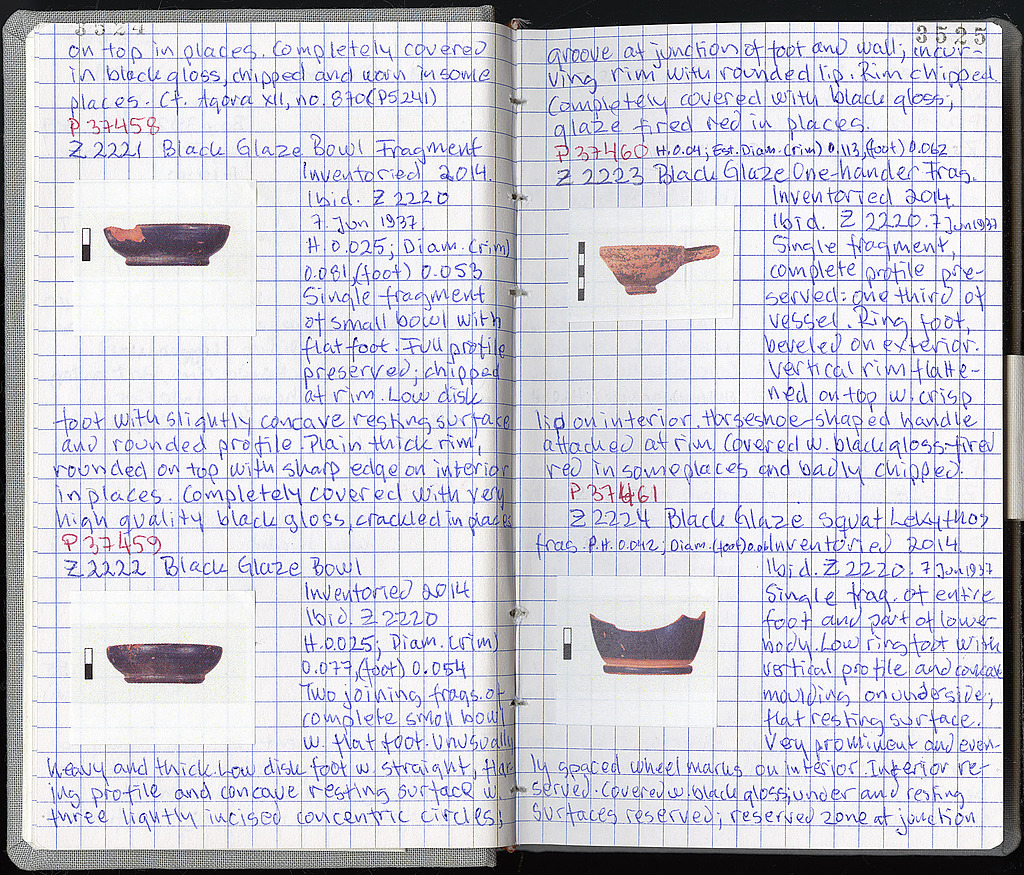 3524
on top in places. Completely covered
in black gloss, chipped and worn in some
places. Cf. Agora XII, no. 870 (P5241)
P 37458
Z 2221 Black Glaze Bowl Fragment
Inventoried 2014.
Ibid. Z 2220
7 Jun 1937.
H. 0.025; Diam. (rim)
0.081, (foot) 0.053
Single fragment
of small bowl with
flat foot. Full profile
preserved; chipped
at rim. Low disk
foot with slightly concave resting surface
and rounded profile. Plain thick rim,
rounded on top with sharp edge on interior
in places. Completely covered with very
high quality black gloss, crackled in places
P 37459
Z 2222 Black Glaze Bowl
Inventoried 2014
Ibid. Z 2220
H. 0.025; Diam. (rim)
0.077, (foot) 0.054
Two joining frags. of
complete small bowl
w. flat foot. Unusually
heavy and thick. Low disk foot w. straight, flar-
ing profile and concave resting surface w.
three lightly incised concentric circles;
3525
groove at junction of foot and wall; incur-
ving rim with rounded lip. Rim chipped.
Completely covered with black gloss;
glaze fired red in places.
P 37460 H. 0.04; Est. Diam. (rim) 0.113, (foot) 0.062
Z 2223 Black Glaze One-hander Frag.
Inventoried 2014.
Ibid. Z 2220. 7 Jun 1937
Single fragment,
complete profile pre-
served: one third of
vessel. Ring foot,
beveled on exterior.
Vertical rim flatte-
ned on top w. crisp
lip on interior. Horseshoe-shaped handle
attached at rim. Covered w. black gloss-fired
red in some places and badly chipped.
P 37461
Z 2224 Black Glaze Squat Lekythos
frag. P.H. 0.042; Diam. (foot) 0.06 Inventoried 2014.
Ibid. Z 2220. 7 Jun 1937
Single frag. of entire
foot and part of lower
body. Low ring foot with
vertical profile and concave
moulding on underside;
flat resting surface.
Very prominent and even-
ly spaced wheel marks on interior. Interior re-
served. Covered w. black gloss; under and resting
surfaces reserved; reserved zone at junction